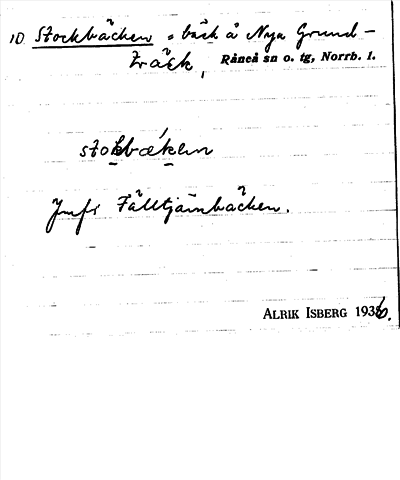 10 Stockbäcken = bäck å Nya Grund-
träsk, Råneå sn o. tg, Norrb. l.
stokbæken
Jmfr Fälltjärnbäcken.
ALRIK ISBERG 1936.